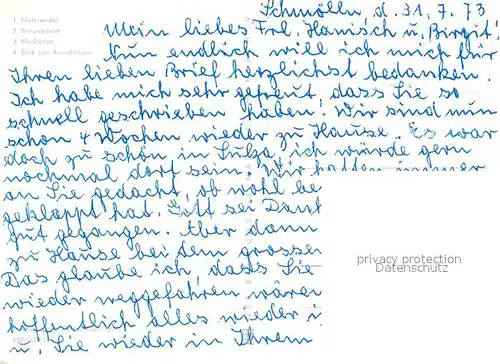 Schmölln, d. 31. 7. 73
1. Malerwinkel
Mein liebes Frl. Hanisch u. Birgit!
2. Brauseteich
3. Marktplatz
Nun endlich will ich mich für
4. Blick zum Aussichtsturm
Ihren lieben Brief herzlichst bedanken.
Ich habe mich sehr gefreut, dass Sie so
schnell geschrieben haben. Wir sind nun
schon 4 Wochen wieder zu Hause. Es war
doch zu schön in Sulza, ich würde gern
nochmal dort sein. Wir hatten immer
an Sie gedacht, ob wohl be
geklappt hat. Gott sei Dank
gut gegangen. Aber dann
zu Hause bei dem grossen
Das glaube ich, dass Sie
wieder weggefahren wären
hoffentlich alles wieder i
u. Sie wieder in Ihrem
privacy protection
Datenschutz